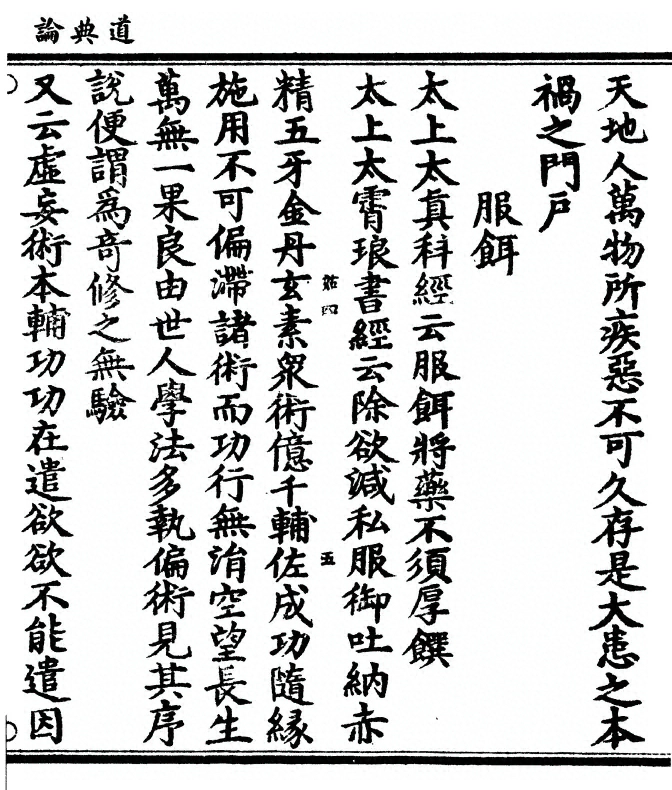 道典論
天地人萬物所疾惡不可久存是大患之本
禍之門戶
服餌
太上太真科經云服餌將藥不須厚饌
太上太霄琅書經云除欲減私服御吐納赤
精五牙金丹玄素衆術億千輔佐成功隨緣
施用不可偏滯諸術而功行無湏空望長生
萬無一果良由世人學法多執偏術見其序
說便謂爲奇修之無驗
又云虛妄術本輔功功在遣欲欲不能遣因
五